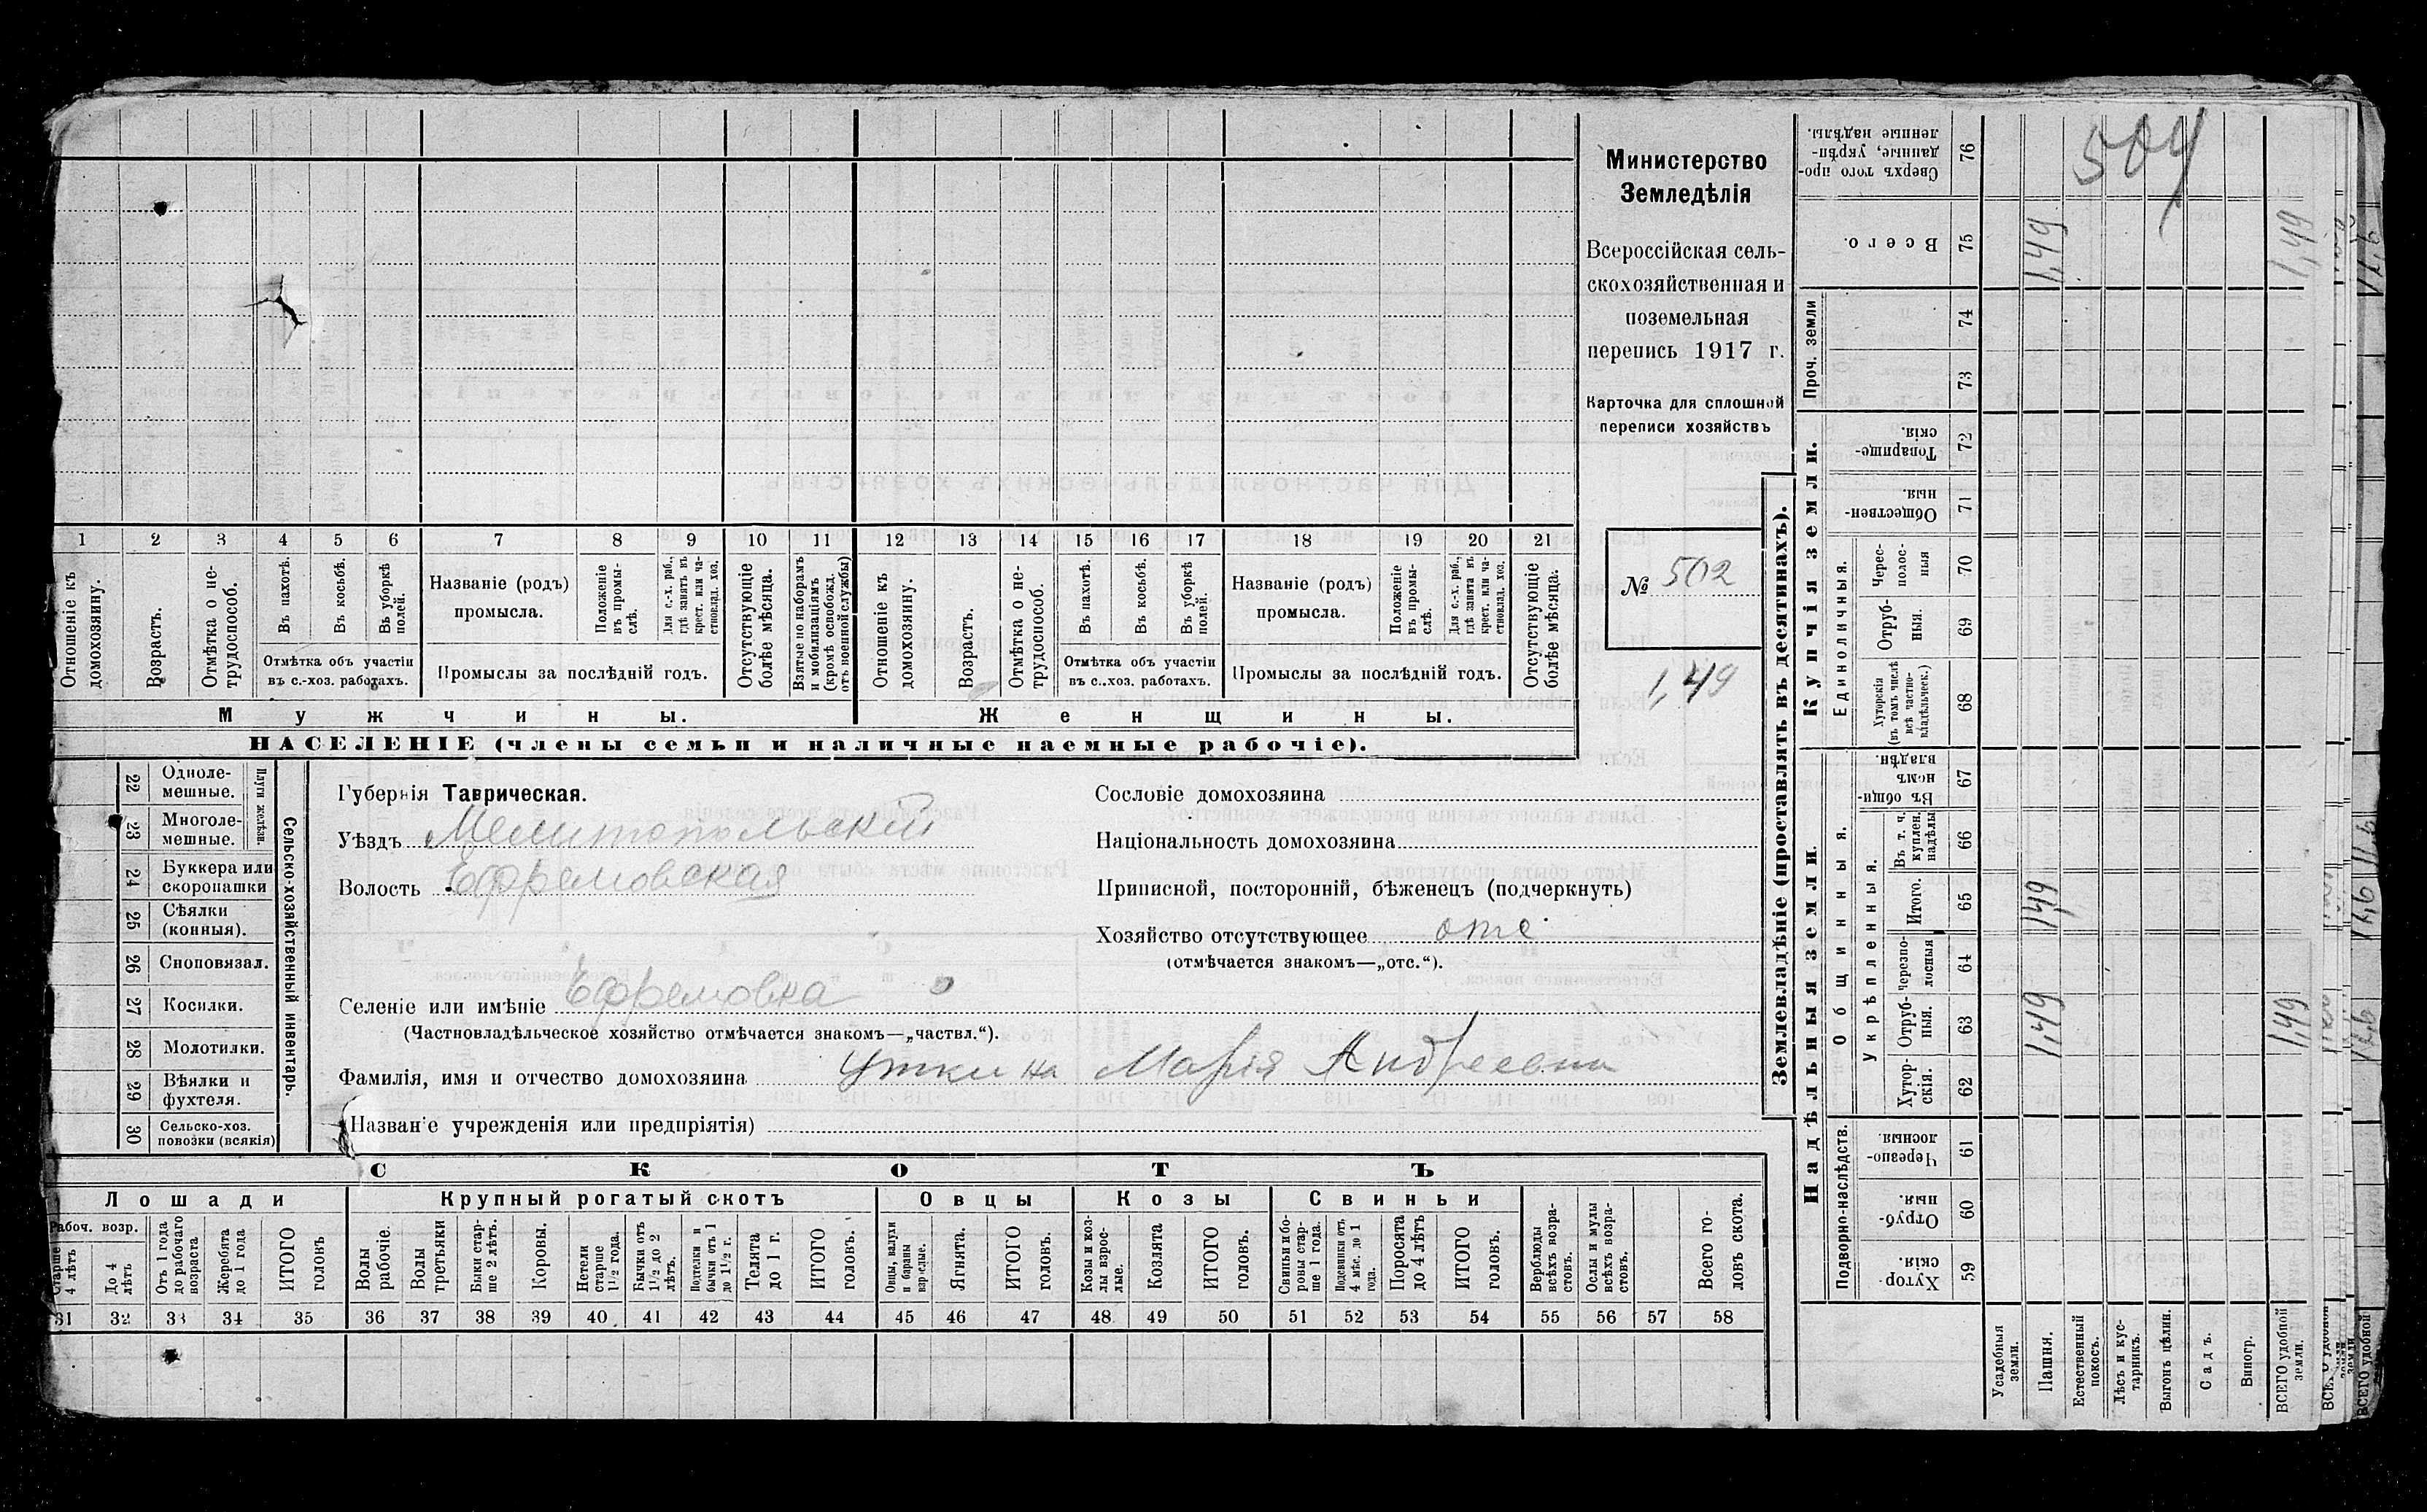 Министерство
Земледѣлія
Всероссійская сель-
скохозяйственная и
поземельная
перепись 1917 г.
Карточка для сплошной
переписи хозяйствъ
№ 502
1,49
504
1 2 3 4 5 6 7 8 9 10 11 12 13 14 15 16 17 18 19 20 21
Отношеніе къ домохозяину.
Возрастъ.
Отмѣтка о не-трудоспособ.
Въ пахотѣ.
Въ косьбѣ.
Въ уборкѣ полей.
Отмѣтка объ участіи
въ с.-хоз. работахъ.
Названіе (родъ)
промысла.
Положеніе въ промы-слѣ.
Для с.-х. раб., гдѣ занятъ въ крест. или ча-стновлад. хоз.
Промыслы за послѣдній годъ.
Отсутствующіе болѣе мѣсяца.
Взятые по наборамъ и мобилизаціямъ (кромѣ освобожд. отъ военной службы)
Отношеніе къ домохозяину.
Возрастъ.
Отмѣтка о не-трудоспособ.
Въ пахотѣ.
Въ косьбѣ.
Въ уборкѣ полей.
Отмѣтка объ участіи
въ с.-хоз. работахъ.
Названіе (родъ)
промысла.
Положеніе въ промы-слѣ.
Для с.-х. раб., гдѣ занята въ крест. или ча-стновлад. хоз.
Промыслы за послѣдній годъ.
Отсутствующіе болѣе мѣсяца.
Мужчины.
Женщины.
НАСЕЛЕНІЕ (члены семьи и наличные наемные рабочіе).
Сельско-хозяйственный инвентарь.
Плуги желѣзн.
22 Одноле-мешные.
23 Многоле-мешные.
24 Буккера или скоропашки
25 Сѣялки (конныя).
26 Сноповязал.
27 Косилки.
28 Молотилки.
29 Вѣялки и фухтеля.
30 Сельско-хоз. повозки (всякія)
Губернія Таврическая.
Уѣздъ Мелитопольскій
Волость Ефремовская
Селеніе или имѣніе Ефремовка
(Частновладѣльческое хозяйство отмѣчается знакомъ—„частвл.“).
Фамилія, имя и отчество домохозяина Уткина Марія Андреевна
(Названіе учрежденія или предпріятія)
Сословіе домохозяина
Національность домохозяина
Приписной, посторонній, бѣженецъ (подчеркнуть)
Хозяйство отсутствующее отс
(отмѣчается знакомъ—„отс.“).
СКОТЪ
Лошади
Крупный рогатый скотъ
Овцы
Козы
Свиньи
Рабоч. возр.
Старше 4 лѣтъ
До 4 лѣтъ
Отъ 1 года до рабочаго возраста
Жеребята до 1 года
ИТОГО головъ
Волы рабочіе.
Волы третьяки
Быки стар-ше 2 лѣтъ.
Коровы.
Нетели старше 1½ года.
Бычки отъ 1½ до 2 лѣтъ.
Подтелки и бычки отъ 1 до 1½ г.
Телята до 1 г.
ИТОГО головъ.
Овцы, валухи и бараны взрослые.
Ягнята.
ИТОГО головъ.
Козы и коз-лы взрос-лые.
Козлята
ИТОГО головъ.
Свиньи и бо-ровы стар-ше 1 года.
Подсвинки отъ 4 мѣс. до 1 года.
Поросята до 4 лѣтъ
ИТОГО головъ.
Верблюды всѣхъ возра-стовъ.
Ослы и мулы всѣхъ возра-стовъ.
Всего го-ловъ скота.
31 32 33 34 35 36 37 38 39 40 41 42 43 44 45 46 47 48 49 50 51 52 53 54 55 56 57 58
Землевладѣніе (проставлять въ десятинахъ).
Купчія земли.
Надѣльныя земли.
Сверхъ того про-данные, укрѣп-ленные надѣлы. 76
Всего. 75 1,49 1,49
Проч. земли 74 73
Товарище-скія. 72
Обществен-ныя 71
Единоличныя.
Черес-полос-ныя 70
Отруб-ныя. 69
Хуторскія (въ томъ числѣ всѣ частно-владѣльческ.) 68
Общинныя.
Въ общи-нномъ владѣн. 67
Укрѣпленныя.
Въ т. ч. куплен. надѣлы 66
Итого. 65 1,49
черезпо-лосныя 64
Отруб-ныя. 63 1,49 1,49
Хутор-скія. 62
Подворно-наслѣдств.
Черезпо-лосныя. 61
Отруб-ныя. 60
Хутор-скія. 59
Усадебныя земли.
Пашня.
Естественный покосъ.
Лѣсъ и кус-тарникъ.
Выгонъ цѣлин.
Садъ.
Виногр.
ВСЕГО удобной земли.
ВСЕГО удобной